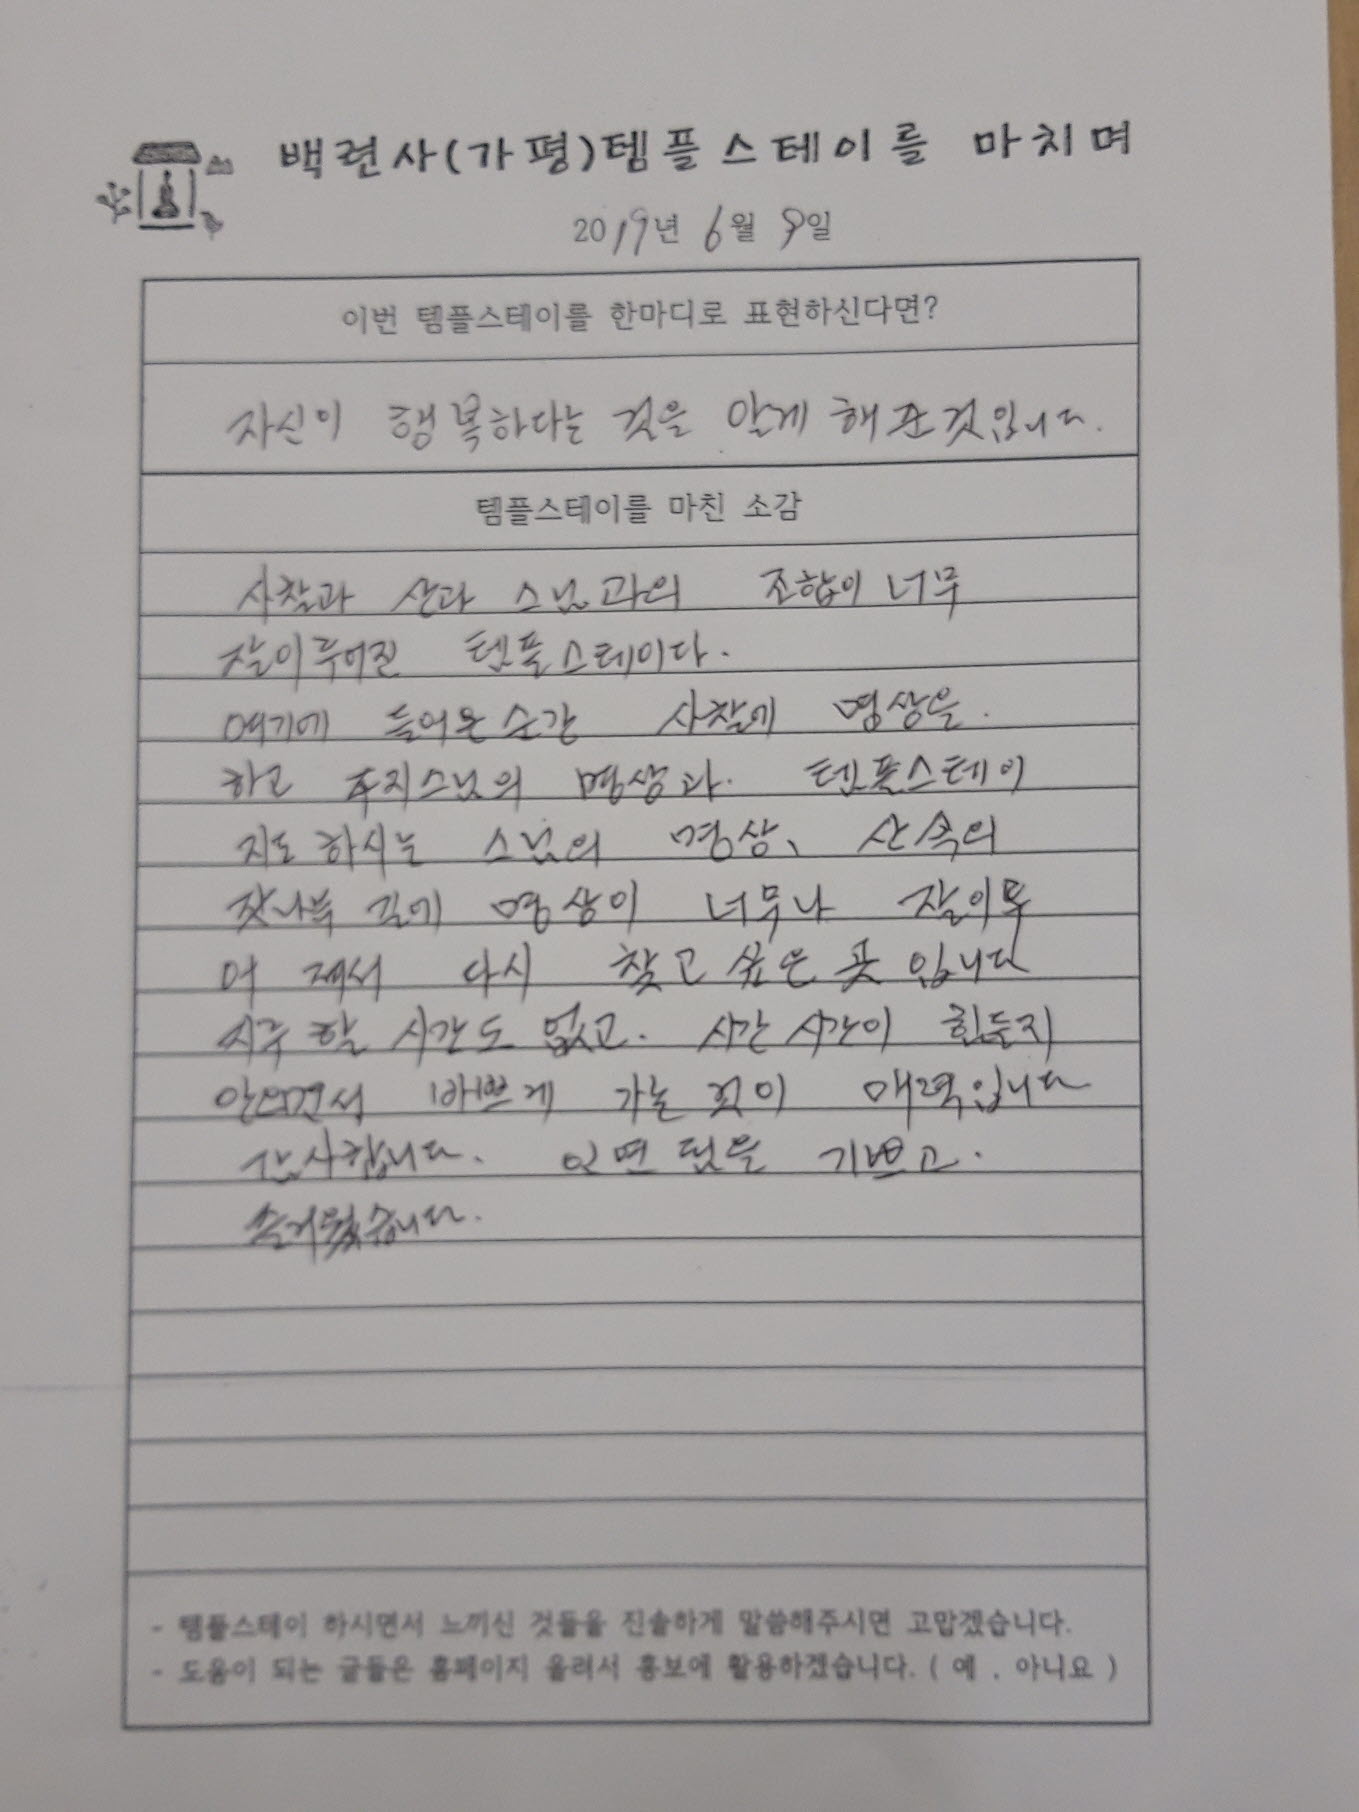 백련사(가평)템플스테이를 마치며
2019년 6월 9일
이번 템플스테이를 한마디로 표현하신다면?
자신이 행복하다는 것을 알게 해준것입니다.
템플스테이를 마친 소감
사찰과 산과 스님과의 조합이 너무
잘이루어진 템플스테이다.
여기에 들어온순간 사찰에 명상을.
하고 주지스님의 명상과. 템플스테이
지도하시는 스님의 명상, 산속의
잣나무 길에 명상이 너무나 잘이루
어 져서 다시 찾고 싶은 곳 입니다
지루 할 시간도 없고. 시간 시간이 힘들지
안으면서 바쁘게 가는 것이 매력입니다
감사합니다. 기쁘고.
즐거웠습니다.
- 템플스테이 하시면서 느끼신 것들을 진솔하게 말씀해주시면 고맙겠습니다.
- 도움이 되는 글들은 홈페이지 올려서 홍보에 활용하겠습니다. ( 예 . 아니요 )